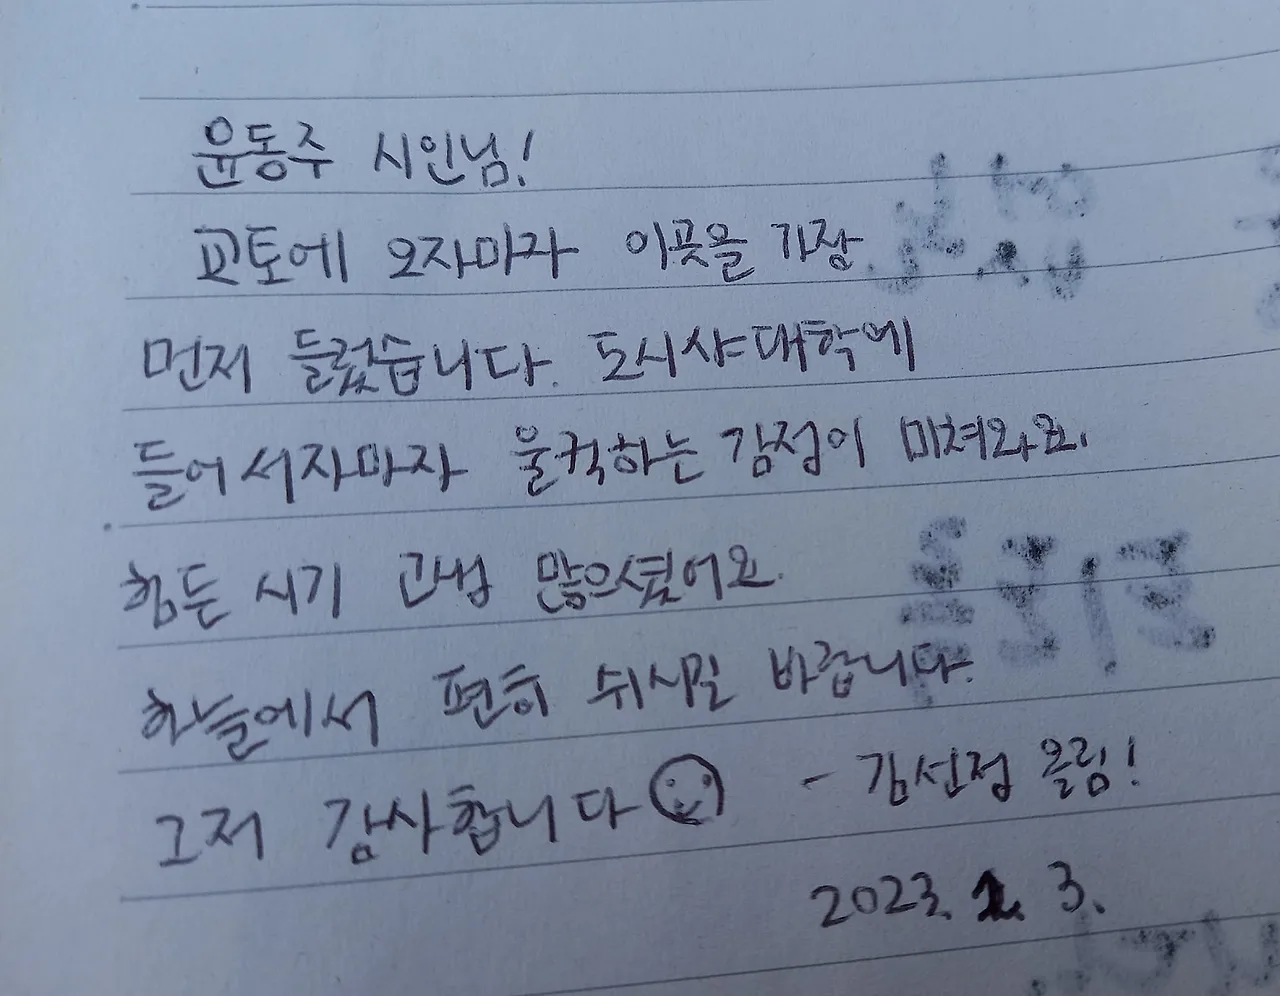 윤동주 시인님!
교토에 오자마자 이곳을 가장
먼저 들렀습니다. 도시샤대학에
들어서자마자 울컥하는 감정이 미쳐와요.
힘든 시기 고생 많으셨어요.
하늘에서 편히 쉬시길 바랍니다.
그저 감사합니다 - 김선정 올림!
2023. 3.